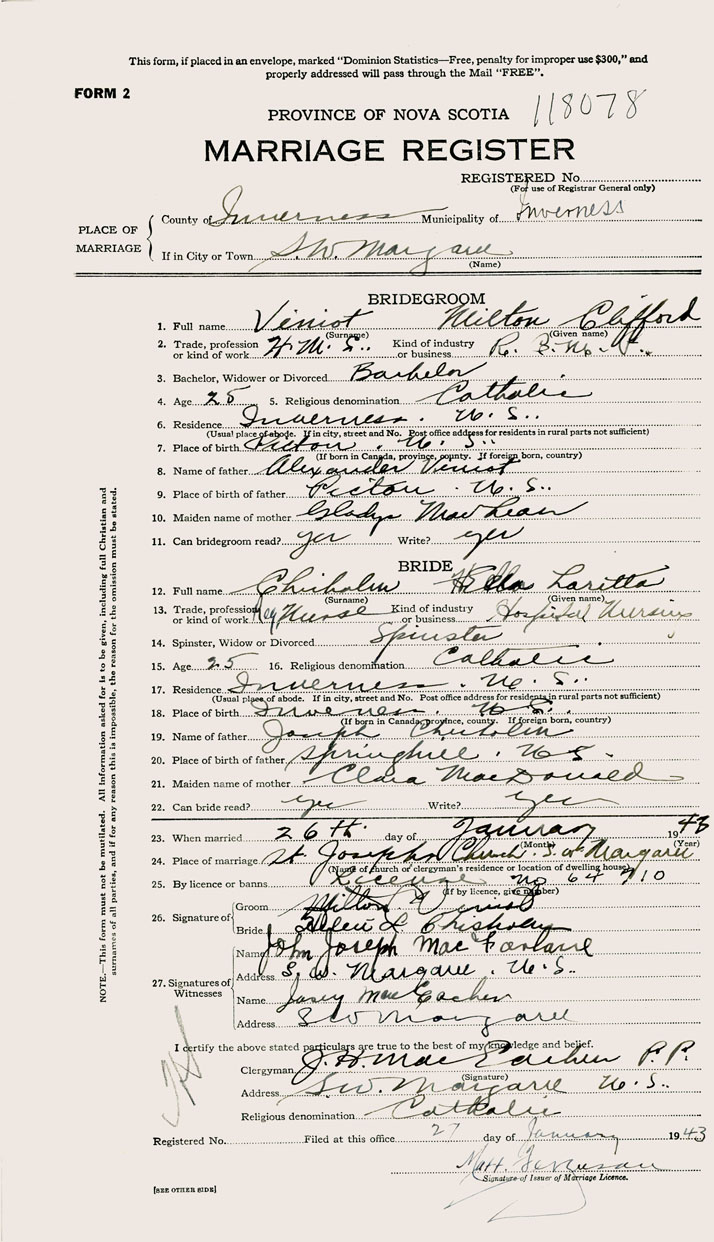 This form, if placed in an envelope, marked "Dominion Statistics—Free, penalty for improper use $300," and
properly addressed will pass through the Mail "FREE".
FORM 2
PROVINCE OF NOVA SCOTIA 118078
MARRIAGE REGISTER
REGISTERED No.
(For use of Registrar General only)
PLACE OF MARRIAGE
County of Inverness Municipality of Inverness
If in City or Town S.W. Margaree
(Name)
BRIDEGROOM
1. Full name Veniot Milton Clifford
(Surname) (Given name)
2. Trade, profession or kind of work H.M.S. Kind of industry or business
3. Bachelor, Widower or Divorced Bachelor
4. Age 25 5. Religious denomination Catholic
6. Residence Inverness. N.S.
(Usual place of abode. If in city, street and No. Post office address for residents in rural parts not sufficient)
7. Place of birth Pictou. N.S.
(If born in Canada, province, county. If foreign born, country)
8. Name of father Alexander Veniot
9. Place of birth of father Pictou. N.S.
10. Maiden name of mother Gladys MacLean
11. Can bridegroom read? yes Write? yes
BRIDE
12. Full name Chisholm Laritta
(Surname) (Given name)
13. Trade, profession or kind of work Reg Nurse Kind of industry or business Hospital Nursing
14. Spinster, Widow or Divorced Spinster
15. Age 25 16. Religious denomination Catholic
17. Residence Inverness. N.S.
(Usual place of abode. If in city, street and No. Post office address for residents in rural parts not sufficient)
18. Place of birth Inverness. N.S.
(If born in Canada, province, county. If foreign born, country)
19. Name of father Joseph Chisholm
20. Place of birth of father Springhill. N.S.
21. Maiden name of mother Clara MacDonald
22. Can bride read? yes Write? yes
23. When married 26th day of January 1943
(Month) (Year)
24. Place of marriage St. Josephs Church. S.W. Margaree
(Name of church or clergyman's residence or location of dwelling house)
25. By licence or banns License No 64710
(If by licence, give number)
26. Signature of Groom Milton Veniot
Bride Helen L Chisholm
27. Signatures of Witnesses
Name John Joseph MacFarlane
Address S.W. Margaree. N.S.
Name MacEachen
Address S W Margaree
I certify the above stated particulars are true to the best of my knowledge and belief.
Clergyman J.H. MacEachen P.P.
(Signature)
Address S.W. Margaree N.S.
Religious denomination Catholic
Registered No. Filed at this office 27 day of January 1943
Matt. Ferguson
Signature of Issuer of Marriage Licence.
[SEE OTHER SIDE]
NOTE.—This form must not be mutilated. All information asked for is to be given, including full Christian and
surnames of all parties, and if for any reason this is impossible, the reason for the omission must be stated.